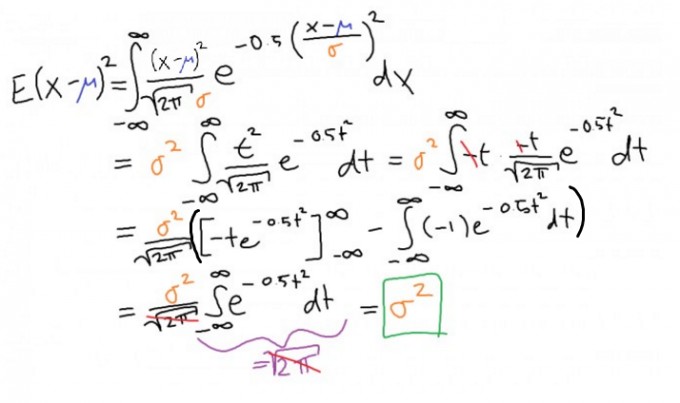 E(x-μ)² = ∫_{-∞}^{∞} (x-μ)²/(√(2π) σ) e^{-0.5((x-μ)/σ)²} dx
= σ² ∫_{-∞}^{∞} t²/√(2π) e^{-0.5t²} dt = σ² ∫_{-∞}^{∞} -t · -t/√(2π) e^{-0.5t²} dt
= σ²/√(2π) ([-te^{-0.5t²}]_{-∞}^{∞} - ∫_{-∞}^{∞} (-1)e^{-0.5t²} dt)
= σ²/√(2π) ∫_{-∞}^{∞} e^{-0.5t²} dt = σ²
=√(2π)